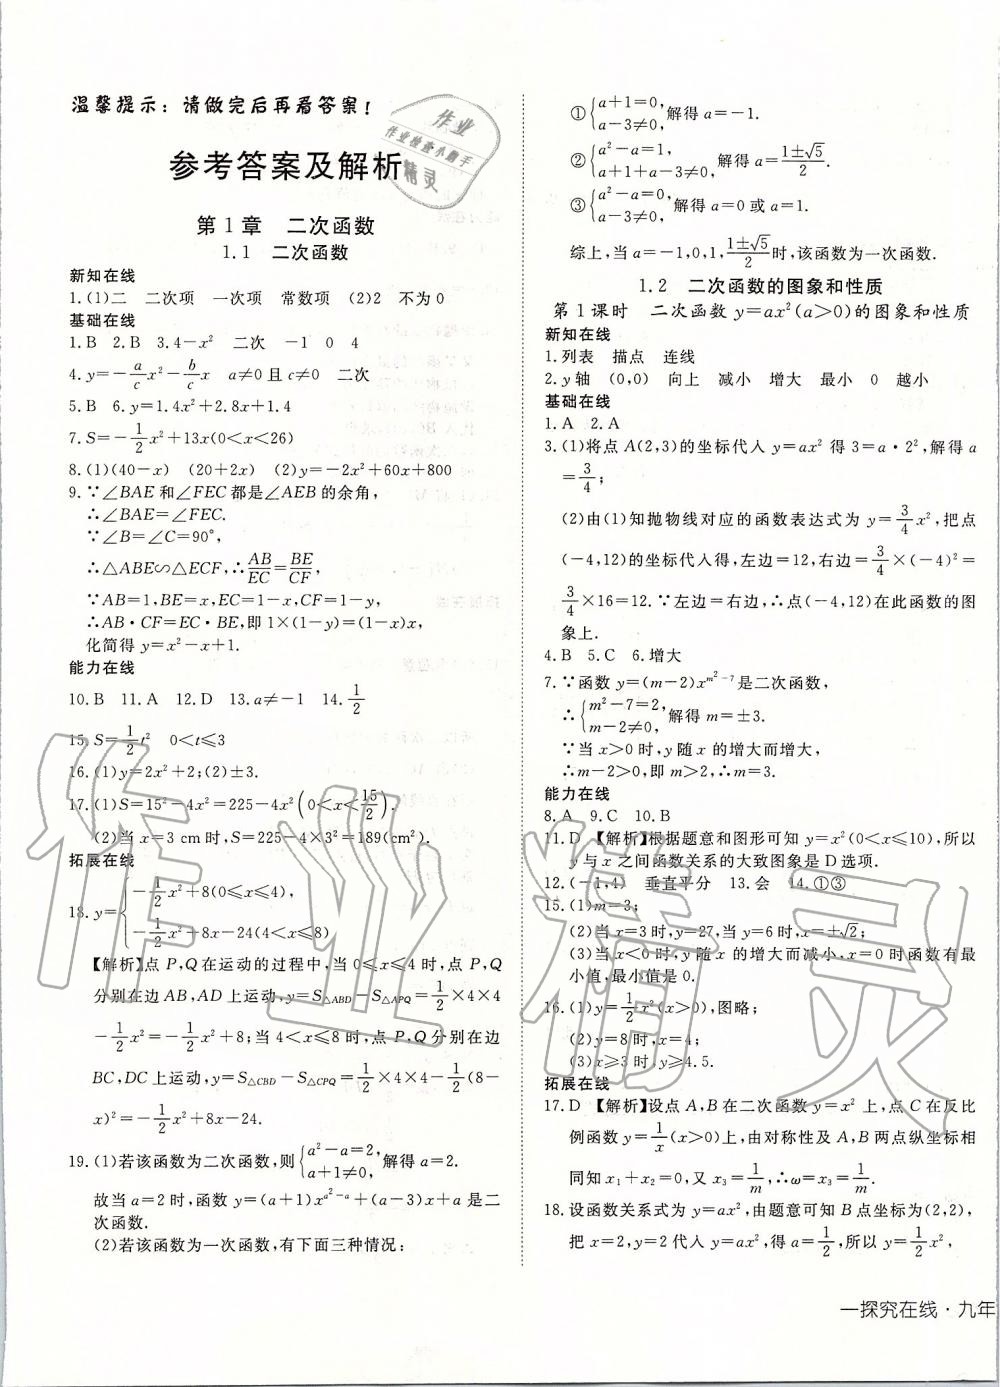 温馨提示：请做完后再看答案！
参考答案及解析
第1章 二次函数
1.1 二次函数
新知在线
1.(1)二 二次项 一次项 常数项 (2)2 不为0
基础在线
1.B 2.B 3.4-x² 二次 -1 0 4
4.y=-a/c x²-b/c x a≠0且c≠0 二次
5.B 6.y=1.4x²+2.8x+1.4
7.S=-1/2x²+13x(0<x<26)
8.(1)(40-x) (20+2x) (2)y=-2x²+60x+800
9.∵∠BAE和∠FEC都是∠AEB的余角,
∴∠BAE=∠FEC.
∵∠B=∠C=90°,
∴△ABE∽△ECF,∴AB/EC=BE/CF.
∵AB=1,BE=x,EC=1-x,CF=1-y,
∴AB·CF=EC·BE,即1×(1-y)=(1-x)x,
化简得y=x²-x+1.
能力在线
10.B 11.A 12.D 13.a≠-1 14.1/2
15.S=1/2t² 0<t≤3
16.(1)y=2x²+2;(2)±3.
17.(1)S=15²-4x²=225-4x²(0<x<15/2).
(2)当x=3 cm时,S=225-4×3²=189(cm²).
拓展在线
18.y={-1/2x²+8(0≤x≤4)
-1/2x²+8x-24(4<x≤8)
【解析】点P,Q在运动的过程中,当0≤x≤4时,点P,Q
分别在边AB,AD上运动,y=S△ABD-S△APQ=1/2×4×4
-1/2x²=-1/2x²+8;当4<x≤8时,点P,Q分别在边
BC,DC上运动,y=S△CBD-S△CPQ=1/2×4×4-1/2(8-
x)²=-1/2x²+8x-24.
19.(1)若该函数为二次函数,则{a²-a=2, a+1≠0, 解得a=2.
故当a=2时,函数y=(a+1)x^(a²-a)+(a-3)x+a是二
次函数.
(2)若该函数为一次函数,有下面三种情况:
①{a+1=0, a-3≠0, 解得a=-1.
②{a²-a=1, a+1+a-3≠0, 解得a=(1±√5)/2.
③{a²-a=0, a-3≠0, 解得a=0或a=1.
综上,当a=-1,0,1,(1±√5)/2时,该函数为一次函数.
1.2 二次函数的图象和性质
第1课时 二次函数y=ax²(a>0)的图象和性质
新知在线
1.列表 描点 连线
2.y轴 (0,0) 向上 减小 增大 最小 0 越小
基础在线
1.A 2.A
3.(1)将点A(2,3)的坐标代入y=ax²得3=a·2²,解得a=
3/4;
(2)由(1)知抛物线对应的函数表达式为y=3/4x²,把点
(-4,12)的坐标代入得,左边=12,右边=3/4×(-4)²=
3/4×16=12.∵左边=右边,∴点(-4,12)在此函数的图
象上.
4.B 5.C 6.增大
7.∵函数y=(m-2)x^(m²-7)是二次函数,
∴{m²-7=2, m-2≠0, 解得m=±3.
∵当x>0时,y随x的增大而增大,
∴m-2>0,即m>2,∴m=3.
能力在线
8.A 9.C 10.B
11.D 【解析】根据题意和图形可知y=x²(0<x≤10),所以
y与x之间函数关系的大致图象是D选项.
12.(-1,4) 垂直平分 13.会 14.①③
15.(1)m=3;
(2)当x=3时,y=27,当y=6时,x=±√2;
(3)当x<0时,y随x的增大而减小,x=0时函数有最
小值,最小值是0.
16.(1)y=1/2x²(x>0),图略;
(2)y=8时,x=4;
(3)x≥3时,y≥4.5.
拓展在线
17.D 【解析】设点A,B在二次函数y=x²上,点C在反比
例函数y=1/x(x>0)上,由对称性及A,B两点纵坐标相
同知x₁+x₂=0,又x₃=1/m,∴ω=x₃=1/m.
18.设函数关系式为y=ax²,由题意可知B点坐标为(2,2),
把x=2,y=2代入y=ax²,得a=1/2,所以y=1/2x²,
一探究在线·九年
作业
作业检查小助手
精灵
作业精灵